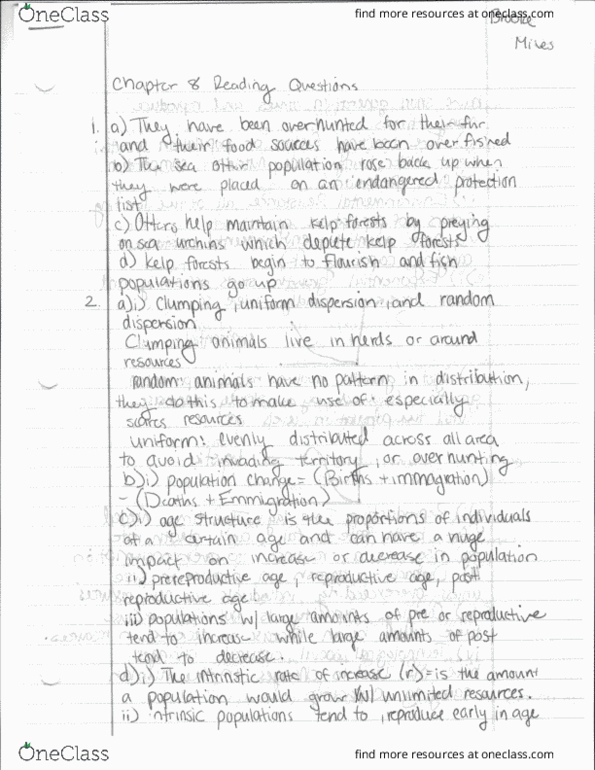 OneClass
find more resources at oneclass.com
Brooke
Miles
Chapter 8 Reading Questions
1. a) They have been overhunted for their fur
and their food sources have been over fished
b) The sea otter population rose back up when
they were placed on an endangered protection
list
c) Otters help maintain kelp forests by preying
on sea urchins which deplete kelp forests
d) kelp forests begin to flourish and fish
populations go up
2. a)i) Clumping, uniform dispersion, and random
dispersion
Clumping animals live in herds or around
resources
random: animals have no pattern in distribution,
they do this to make use of especially
scarce resources
uniform: evenly distributed across all area
to avoid invading territory, or over hunting
b)i) population change = (Births + immagration)
- (Deaths + Emmigration)
c)i) age structure is the proportions of individuals
at a certain age and can have a huge
impact on increase or decrease in population
ii) prereproductive age, reproductive age, post
reproductive age
iii) populations w/ large amounts of pre or reproductive
tend to increase while large amounts of post
tend to decrease.
d)i) The intrinstic rate of increase (r) = is the amount
a population would grow w/ unlimited resources.
ii) intrinsic populations tend to reproduce early in age
OneClass
find more resources at oneclass.com